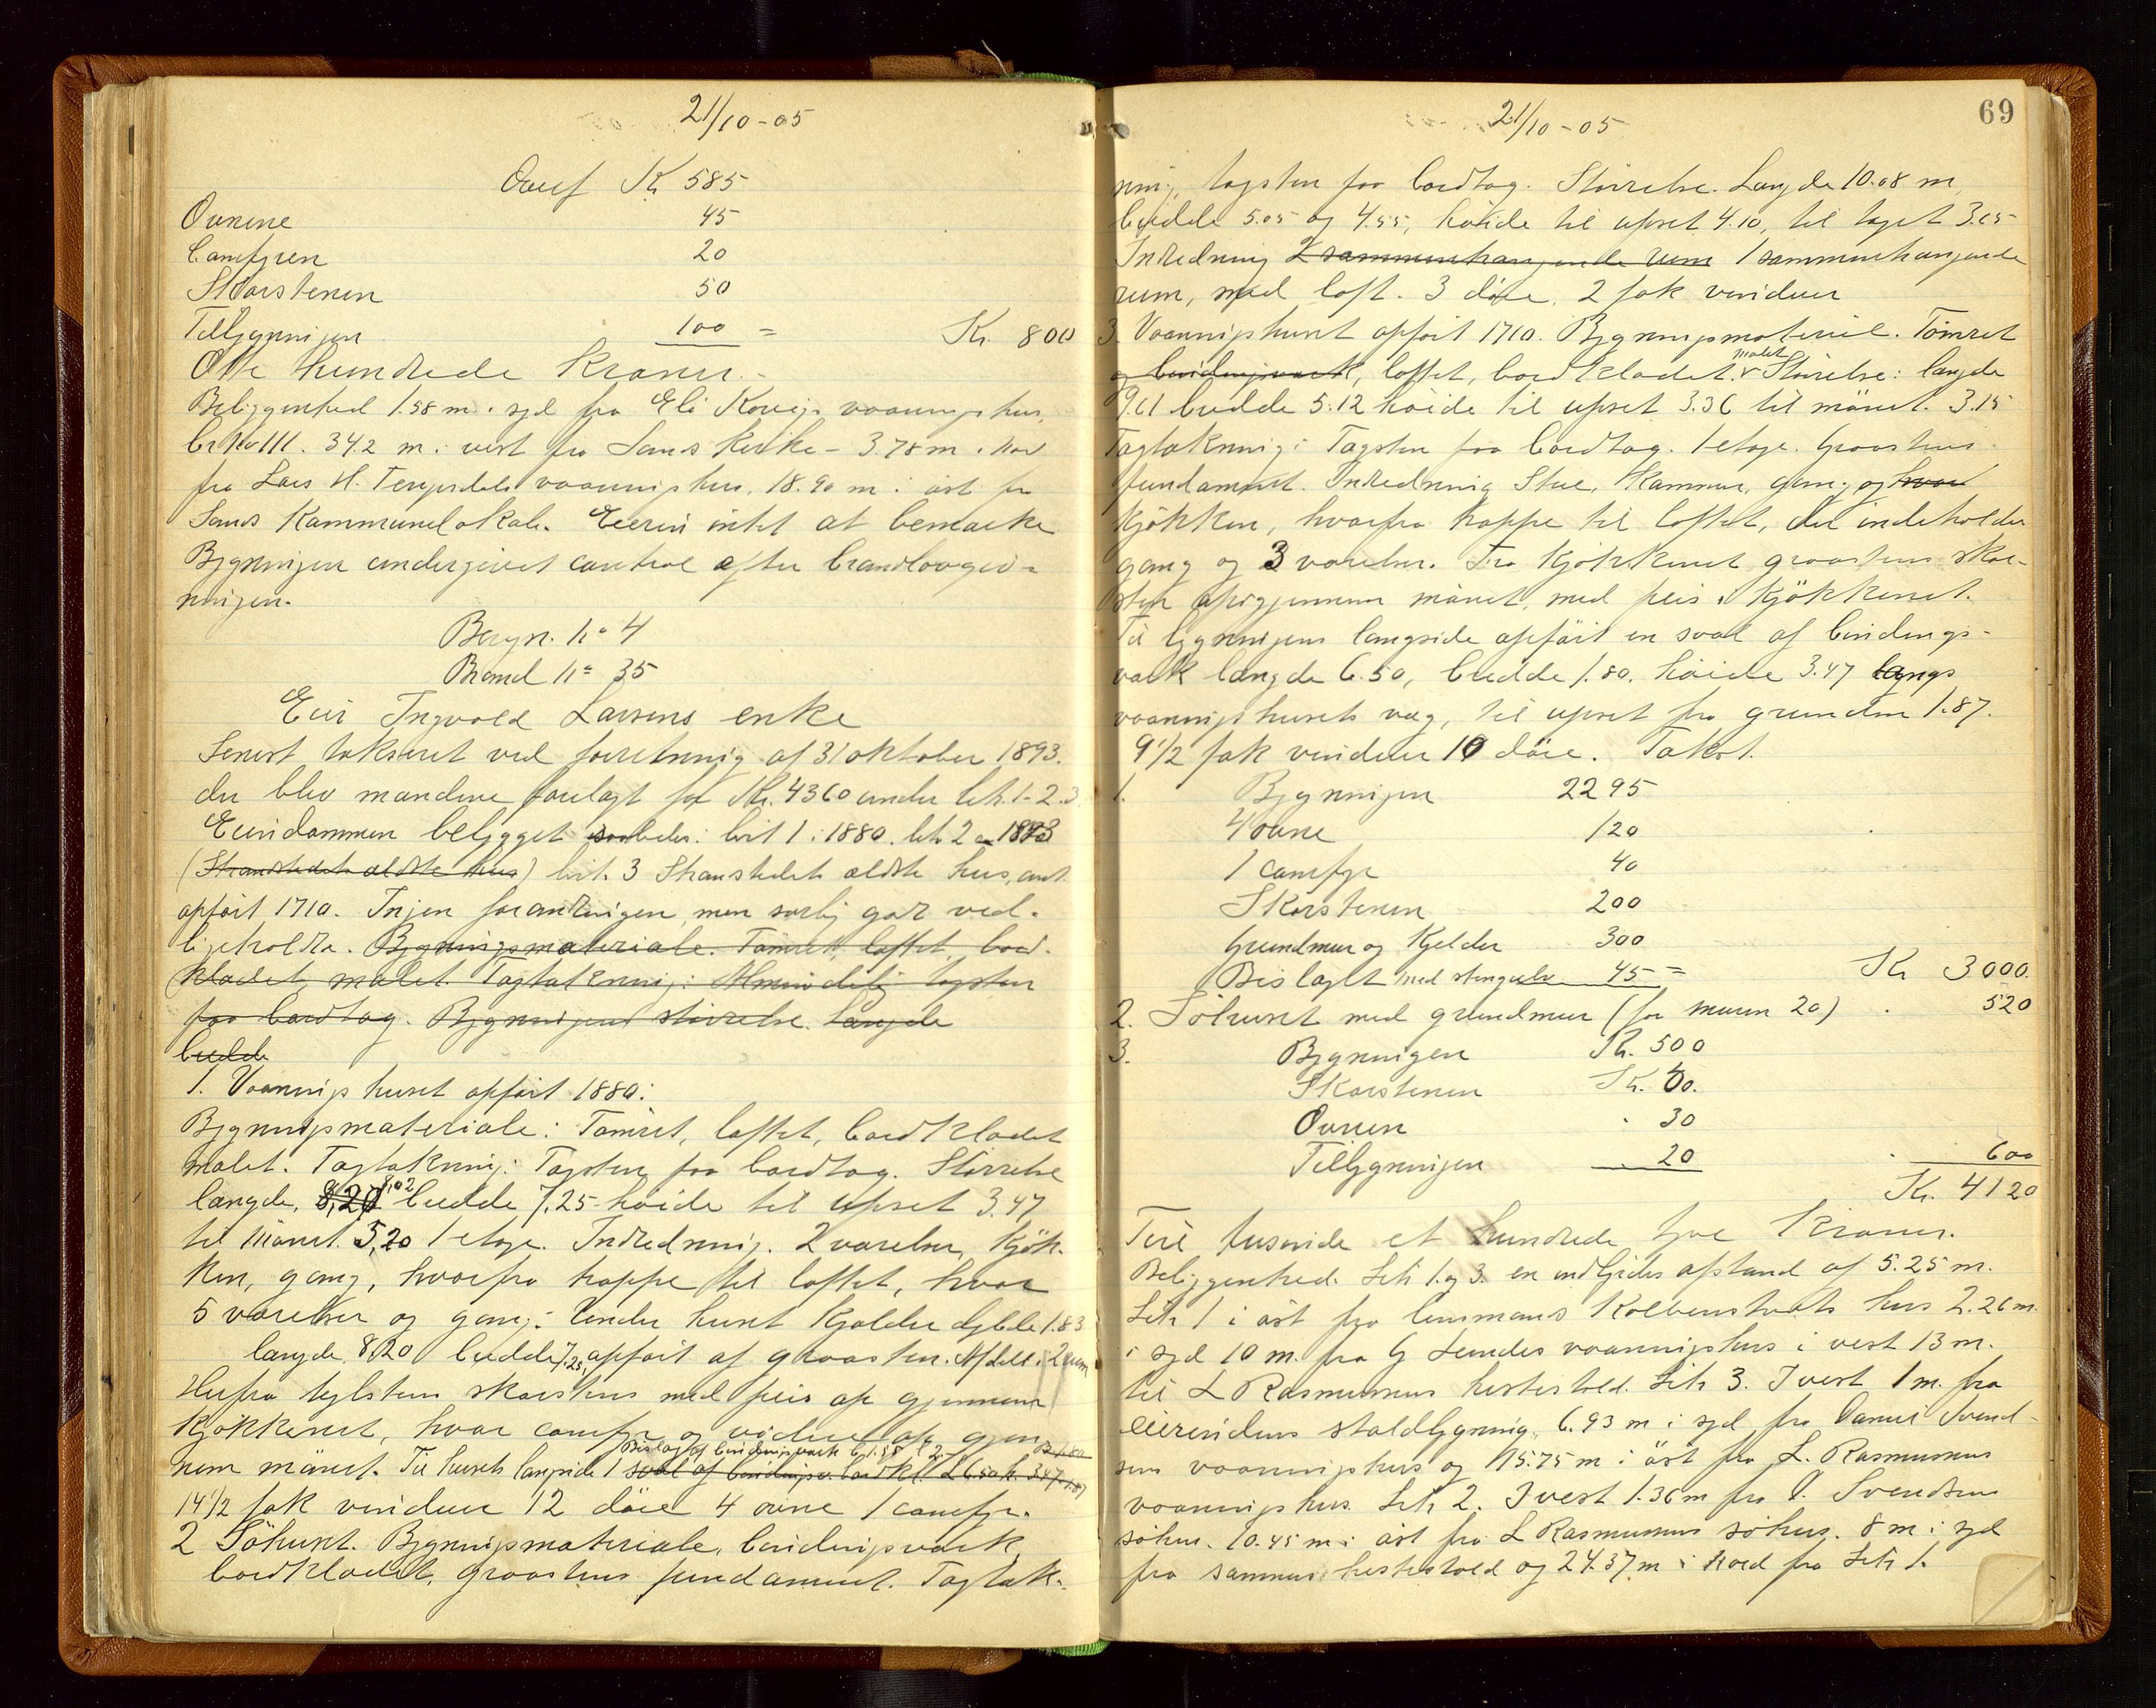 21/10-05
Overf Kr 585
Ovnene 45
Comfyren 20
Skorstenen 50
Tilbygningen 100 = Kr. 800
Otte hundrede kroner.-
Beliggenhed 1.58 m. syd fra Eli Kovigs vaaningshus,
br no 111. 34.2 m. i vest fra Sands kirke - 3.78 m i nord
fra Lars H. Tengesdals vaaningshus. 18.90 m i øst fra
Sands Kommunelokale. Eieren intet at bemærke
Bygningen undergivet control efter brandlovgiv-
ningen.
Bergn. no 4
Brand no 35
Eier Ingvald Larsens enke
Senest takseret ved forretning af 31 oktober 1893.
da blev mandene forelagt for Kr. 4360 under litr. 1-2-3
Eiendommen bebygget saaledes: lit 1 i 1880. litr 2 1893
(Strandstedets ældste hus) lit. 3 Strandstedets ældste hus, ant.
opført 1710. Ingen forandringer, men særlig god ved-
ligeholdte. Bygningsmateriale. Tømret, loftet, bord-
klædet, malet. Tagtækning: Almindelig tagsten
paa bordtag. Bygningens størrelse. længde
bredde
1. Vaaningshuset opført 1880:
Bygningsmateriale: Tømret, loftet, bordklædet
malet. Tagtækning: Tagsten paa bordtag. Størrelse
længde, 8,20 8,02 bredde 7.25 høide til upset 3.47
til mønet. 5,20 1 etage. Indredning. 2 værelser, kjøk-
ken, gang, hvorfra trappe til loftet, hvor
5 værelser og gang. Under huset kjælder dybde 1.83
længde 8,20 bredde 7.25, opført af graasten. Afdelt i 2 rum
Herfra teglstens skorsten med peis op gjennem
kjøkkenet, hvor comfyr og videre op gjen-
nem mønet. Til husets langside 1 sval af bindingsv. bordkl. L 6.50 h. 3.47 1.87
Bislag af bindingsværk
14 1/2 fak vinduer 12 døre 4 ovne 1 comfyr.
2 Søhuset. Bygningsmateriale, bindingsværk
bordklædet, graastens fundament. Tagtæk-
69
21/10-05
ning, tagsten paa bordtag. Størrelse. Længde 10.08 m,
bredde 5.05 og 4.55, høide til upset 4.10, til taget 3.65
Indredning 2 sammenhængende rum 1 sammenhængende
rum, med loft. 3 døre. 2 fak vinduer
3. Vaaningshuset opført 1710. Bygningsmateriel. Tømret
og bindingsværk, loftet, bordklædet. malet Størrelse: længde
9.61 bredde 5.12 høide til upset 3.36 til mønet. 3.15
Tagtækning: Tagsten paa bordtag. 1 etage. Graastens
fundament. Indredning Stue, 1 kammer, gang og hvor
kjøkken, hvorfra trappe til loftet, der indeholder
gang og 3 værelser. Fra kjøkkenet graastens skor-
sten op igjennem mønet, med peis i kjøkkenet.
Til bygningens langside opført en sval af bindings-
værk længde 6.50, bredde 1.80. høide 3.47 langs
vaaningshusets væg, til upset fra grunden 1.87.
9 1/2 fak vinduer 10 døre. Takst.
1. Bygningen 2295
4 ovne 120
1 comfyr 40
Skorstenen 200
Grundmur og Kjelder 300
Bislaget med stengulv 45 = Kr 3000.
2. Søhuset med grundmur (for muren 20) . 520
3. Bygningen Kr. 500
Skorstenen Kr. 50.
Ovnen . 30
Tilbygningen . 20 . 600
Kr. 4120
Fire tusende et hundrede tyve kroner.
Beliggenhed. Litr 1 og 3. en indbyrdes afstand af 5.25 m.
Litr 1 i øst fra lensmand Kolbenstvedts hus 2.26 m.
i syd 10 m. fra G Lundes vaaningshus i vest 13 m.
til L Rasmussens hestestald. Litr 3. I vest 1 m. fra
eierindens staldbygning, 6.93 m i syd fra Daniel Svend-
sens vaaningshus og 15.75 m i øst fra L. Rasmussens
vaaningshus. Litr 2. I vest 1.36 m fra D. Svendsens
søhus. 10.45 m i øst fra L Rasmussens søhus. 8 m i syd
fra sammes hestestald og 24.37 m i nord fra Litr 1.